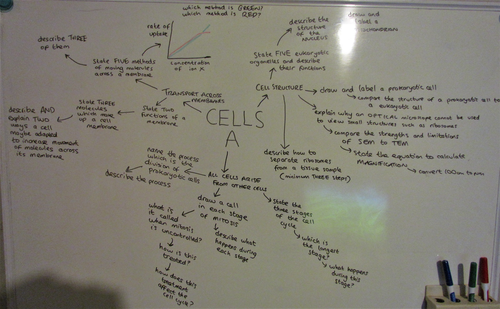 which method is GREEN?
which method is RED?
rate of
uptake
concentration
of ion X
describe THREE
of them
State FIVE methods
of moving molecules
across a membrane
TRANSPORT ACROSS
MEMBRANES
State TWO
functions of a
membrane.
State THREE
molecules
which make
up a cell
membrane
describe AND
explain TWO
ways a cell
maybe adapted
to increase movement
of molecules across
its membrane.
CELLS
A
describe the
structure of
the NUCLEUS
draw and
label a
State FIVE eukaryotic
organelles and describe
their functions
CELL STRUCTURE
draw and label a prokaryotic cell
compare the structure of a prokaryotic cell to
a eukaryotic cell
explain why an OPTICAL microscope cannot be used
to view small structures such as ribosomes
compare the strengths and limitations
of SEM to TEM
state the equation to calculate
MAGNIFICATION
convert 100um to
describe how to
separate ribosomes
from a tissue sample
(minimum THREE steps)
ALL CELLS ARISE
FROM OTHER CELLS
name the process
which is the
division of
prokaryotic cells
describe the process
draw a cell
in each stage
of MITOSIS
describe what
happens during
each stage
what is
it called
when mitosis
is uncontrolled?
how is this
treated?
how does this
treatment
affect the
cell cycle?
State the
three stages
of the cell
cycle
which is
the longest
stage?
what happens
during this
stage?